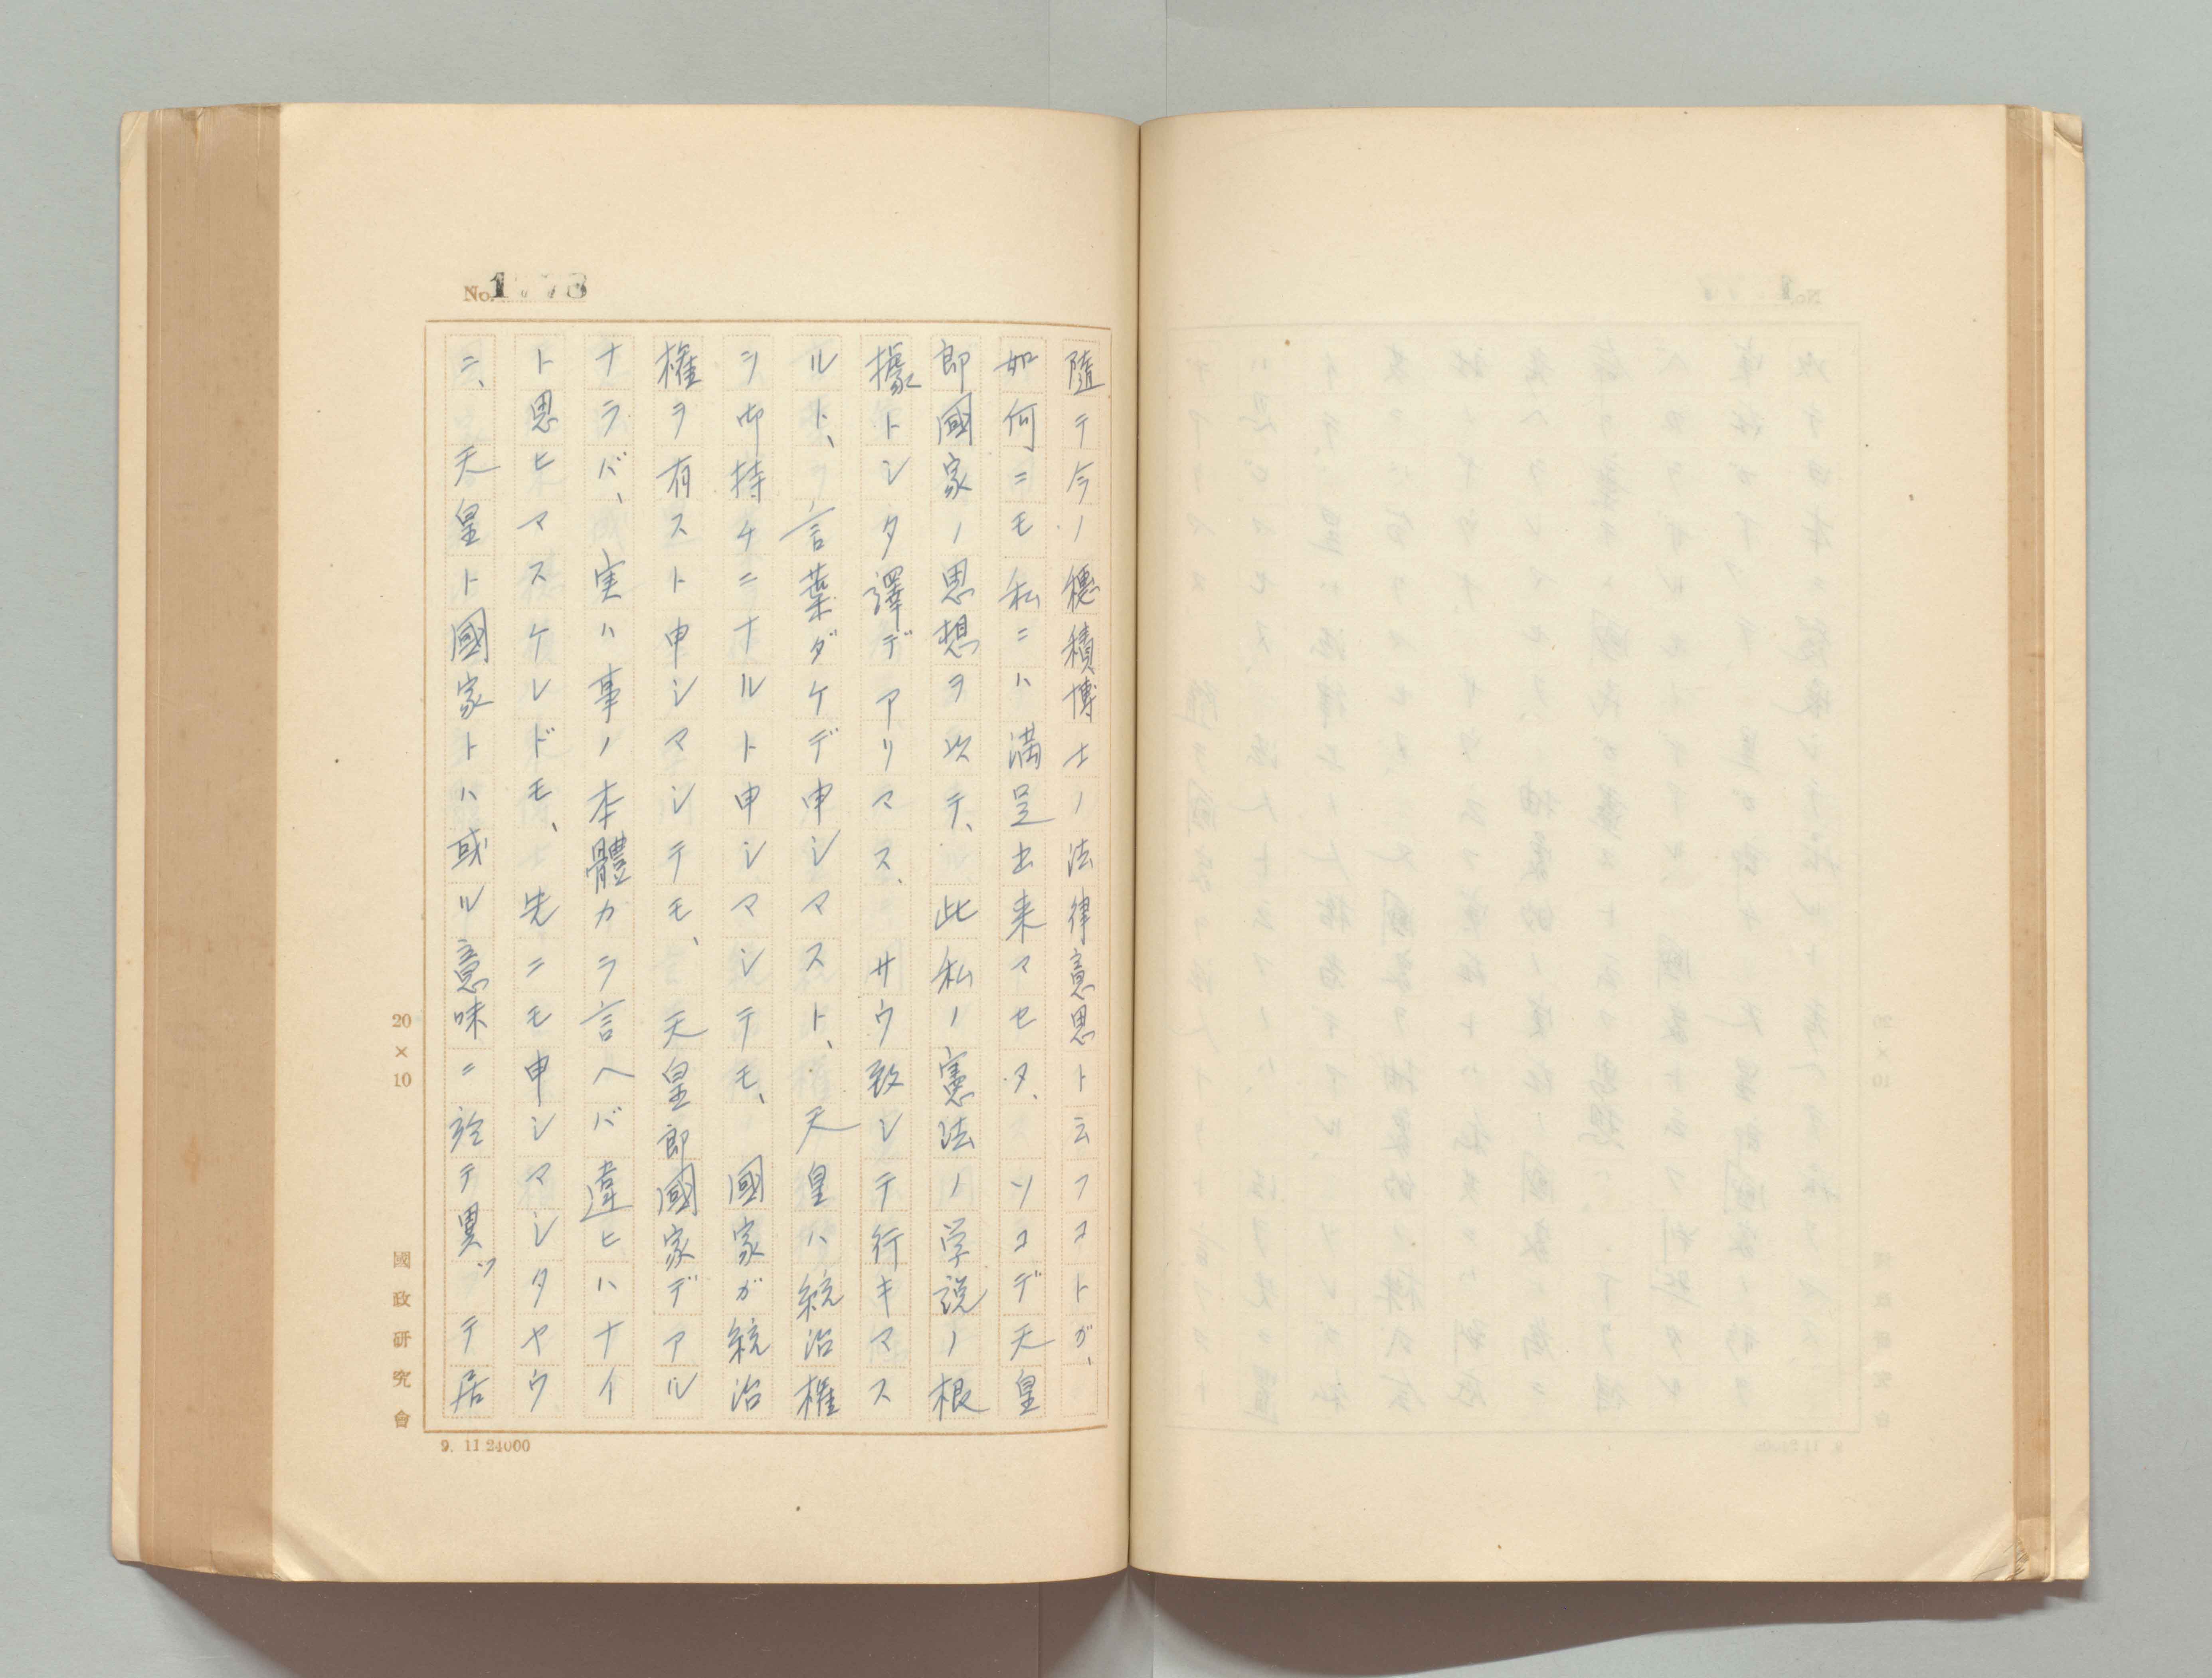 No.1778
隨テ今ノ穂積博士ノ法律意思ト云フコトガ、
如何ニモ私ニハ満足出来マセヌ、ソコデ天皇
即國家ノ思想ヲ以テ、此私ノ憲法ノ学説ノ根
據トシタ譯デアリマス、サウ致シテ行キマス
ルト、言葉ダケデ申シマスト、天皇ハ統治権
ヲ御持チニナルト申シマシテモ、國家ガ統治
権ヲ有スト申シマシテモ、天皇即國家デアル
ナラバ、実ハ事ノ本體カラ言ヘバ違ヒハナイ
ト思ヒマスケレドモ、先ニモ申シマシタヤウ
ニ、天皇ト國家トハ或ル意味ニ於テ異ッテ居
20×10
國政研究會
9. 11 24000